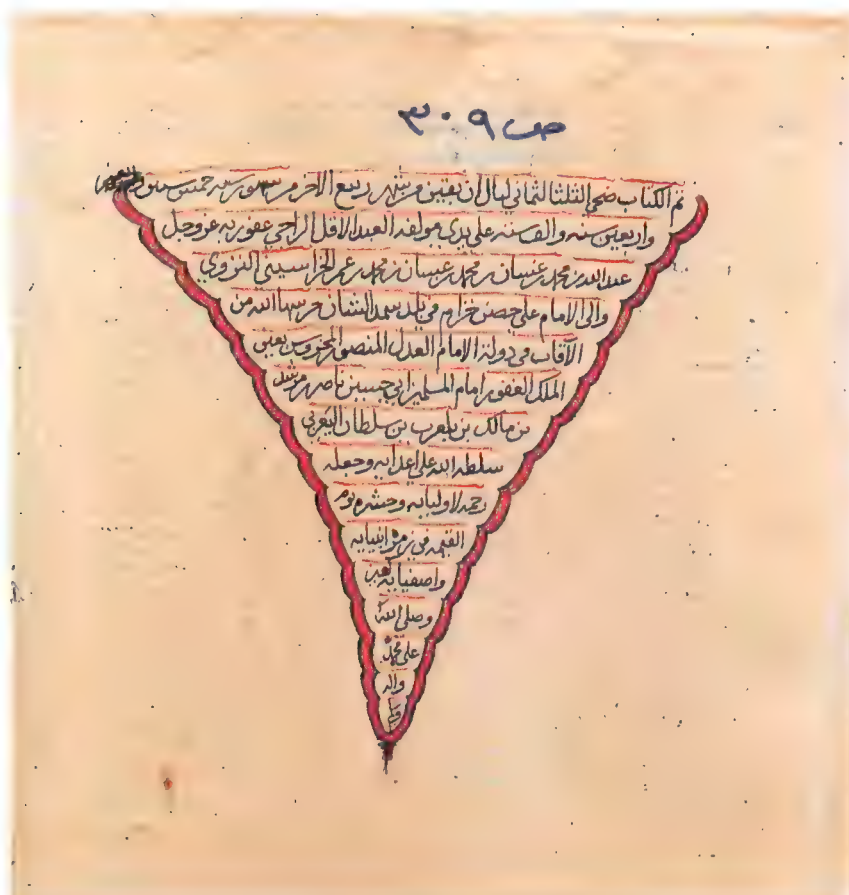 ص ٣٠٩
تم الكتاب ضحى الثلثا لثماني ليال ان بقين من شهر ربيع الاخر من شهور سنه خمس سنين
واربعين سنه والف سنه على يدي مولفه العبد الاقل الراجي عفو ربه عز وجل
عبد الله بن محمد بن غسان بن محمد بن غسان بن محمد بن عمر الخراسيني النزوي
والى الامام على حصن خزام في بلد سمد الشان حرسها الله من
الآفات في دولة الامام العدل المنصور المحروس بعين
الملك الغفور امام المسلمين ابي حبيبين ناصر بن مرشد
بن مالك بن بلعرب بن سلطان اليعربي
سلطه الله على اعدايه وجعله
رحمه لاوليايه وحشره يوم
القيمه في زمرة انبيايه
واصفيايه
وصلى الله
على محمد
واله
وسلم